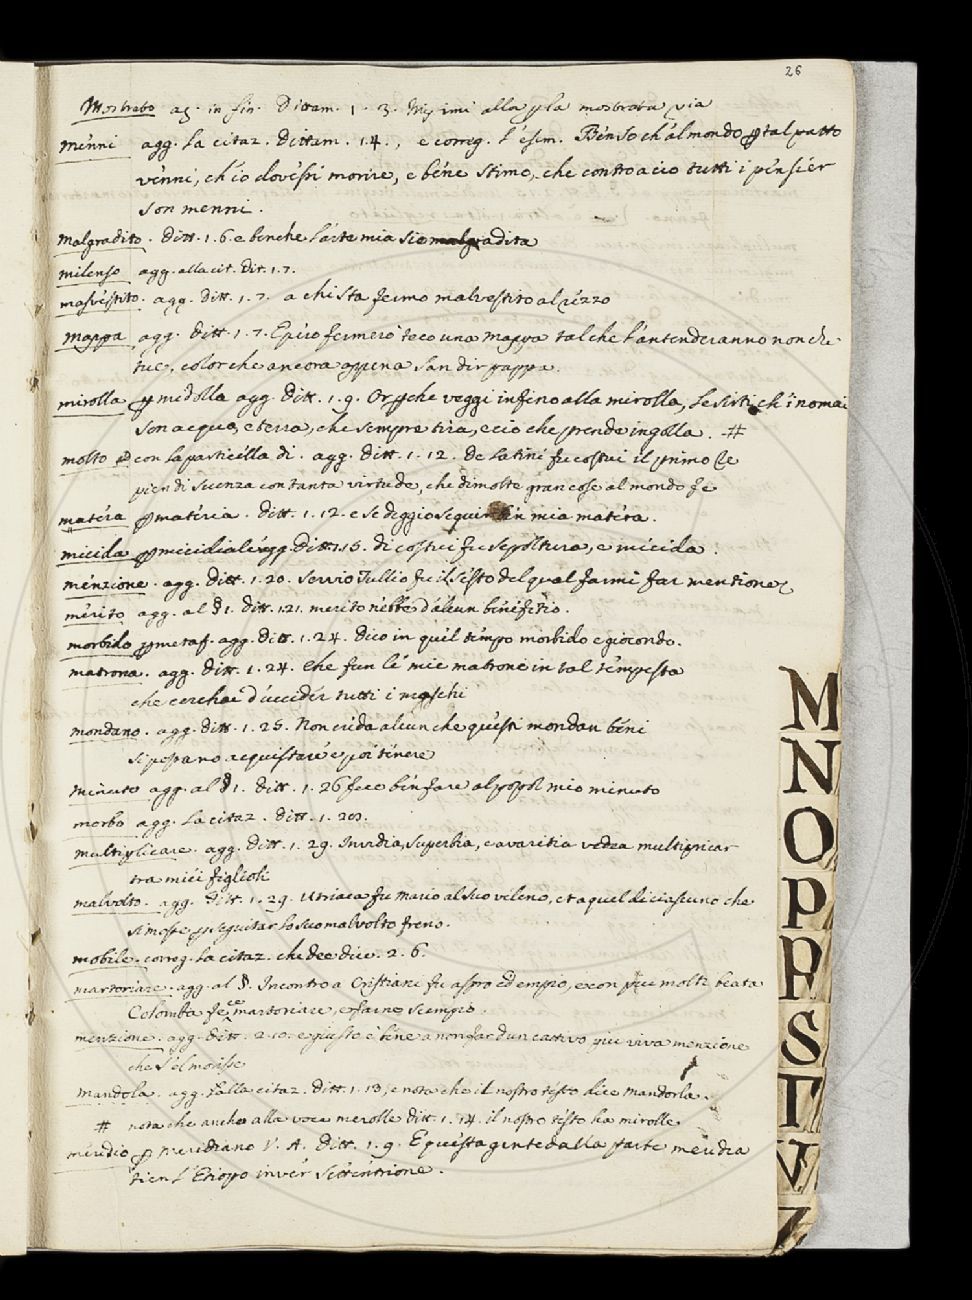 26
Mostrato ag. in fin. Dittam. 1. 3. Mi mi alla p la mostrata via
menni agg. la citaz. Dittam. 1.4., e correg. l'esem. Ben so ch'al mondo p tal patto
venni, ch'io dovessi morire, e bene stimo, che contro a cio tutti i pensier
son menni.
malgradito. ditt. 1.6. e benche l'arte mia sia malgradita
milenso agg. alla cit. dit. 1.7.
malvestito. agg. ditt. 1.7. a chi sta fermo malvestito al rezzo
mappa agg. ditt. 1.7. E piu formerò teco una mappa tal che l'antenderanno non che
tue, color che ancora appena san dir pappa.
mirolla p midolla agg. ditt. 1.9. Or pche veggi infino alla mirolla, le sirti, ch'i nomai
son acqua, e terra, che sempre tira, e cio che prende ingolla. #
molto con la particella di. agg. ditt. 1.12. De latini fu costui il primo Re
pien di scienza con tanta virtude, che di molte gran cose al mondo fe
matera p materia. ditt. 1.12. e se deggio seguir ben mia matera.
micida p micidiale agg. ditt. 1.15. di costui fu sepoltura, e micida.
menzione. agg. ditt. 1.20. Servio Tullio fu il sesto del qual farmi far mentione
merito agg. al § 1. ditt. 1.21. merito n'ebbe d'alcun benefitio.
morbido p metaf. agg. ditt. 1.24. dico in quel tempo morbido e giocondo.
matrona. agg. ditt. 1.24. che fun le mie matrone in tal tempesta
che cerchar d'uccider tutti i maschi
mondano. agg. ditt. 1.25. Non creda alcun che questi mondan beni
si possano acquistare e poi tenere
minuto agg. al § 1. ditt. 1.26 feco ben fare al popol mio minuto
morbo agg. la citaz. ditt. 1.20.
multiplicare. agg. ditt. 1.29. Invidia, Superbia, e avaritia vedea multipricar
tra miei figlioli
malvolto. agg. ditt. 1.29. Utriaca fu Mario al suo veleno, et a quel di ciascuno che
si mosse p seguitar lo suo malvolto freno.
mobile. correg. la citaz. che dee dire. 2.6.
martoriare. agg. al §. Incontro a Cristiani fu aspro ed empio, e con piu molti beata
Colomba fece martoriare, e farne scempio.
menzione. agg. ditt. 2.10. e giusto è bene a non far d'un cattivo piu viva menzione
che s'el morisse
mandola. agg. l'alla citaz. ditt. 1.13, e nota che il nostro testo dice mandorla.
# nota che ancho alla voce merolle ditt. 1.14. il nostro testo ha mirolle
meridio p Meridiano V. A. ditt. 1.9. E questa gente dalla parte meridia
tien l'Etiopo inver settentrione.
M
N
O
P
R
S
T
V
Z